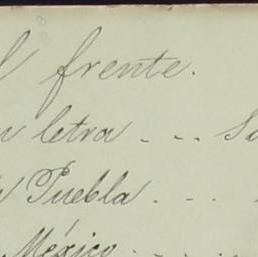 frente.
letra - - -
Puebla. - -
México. - - -